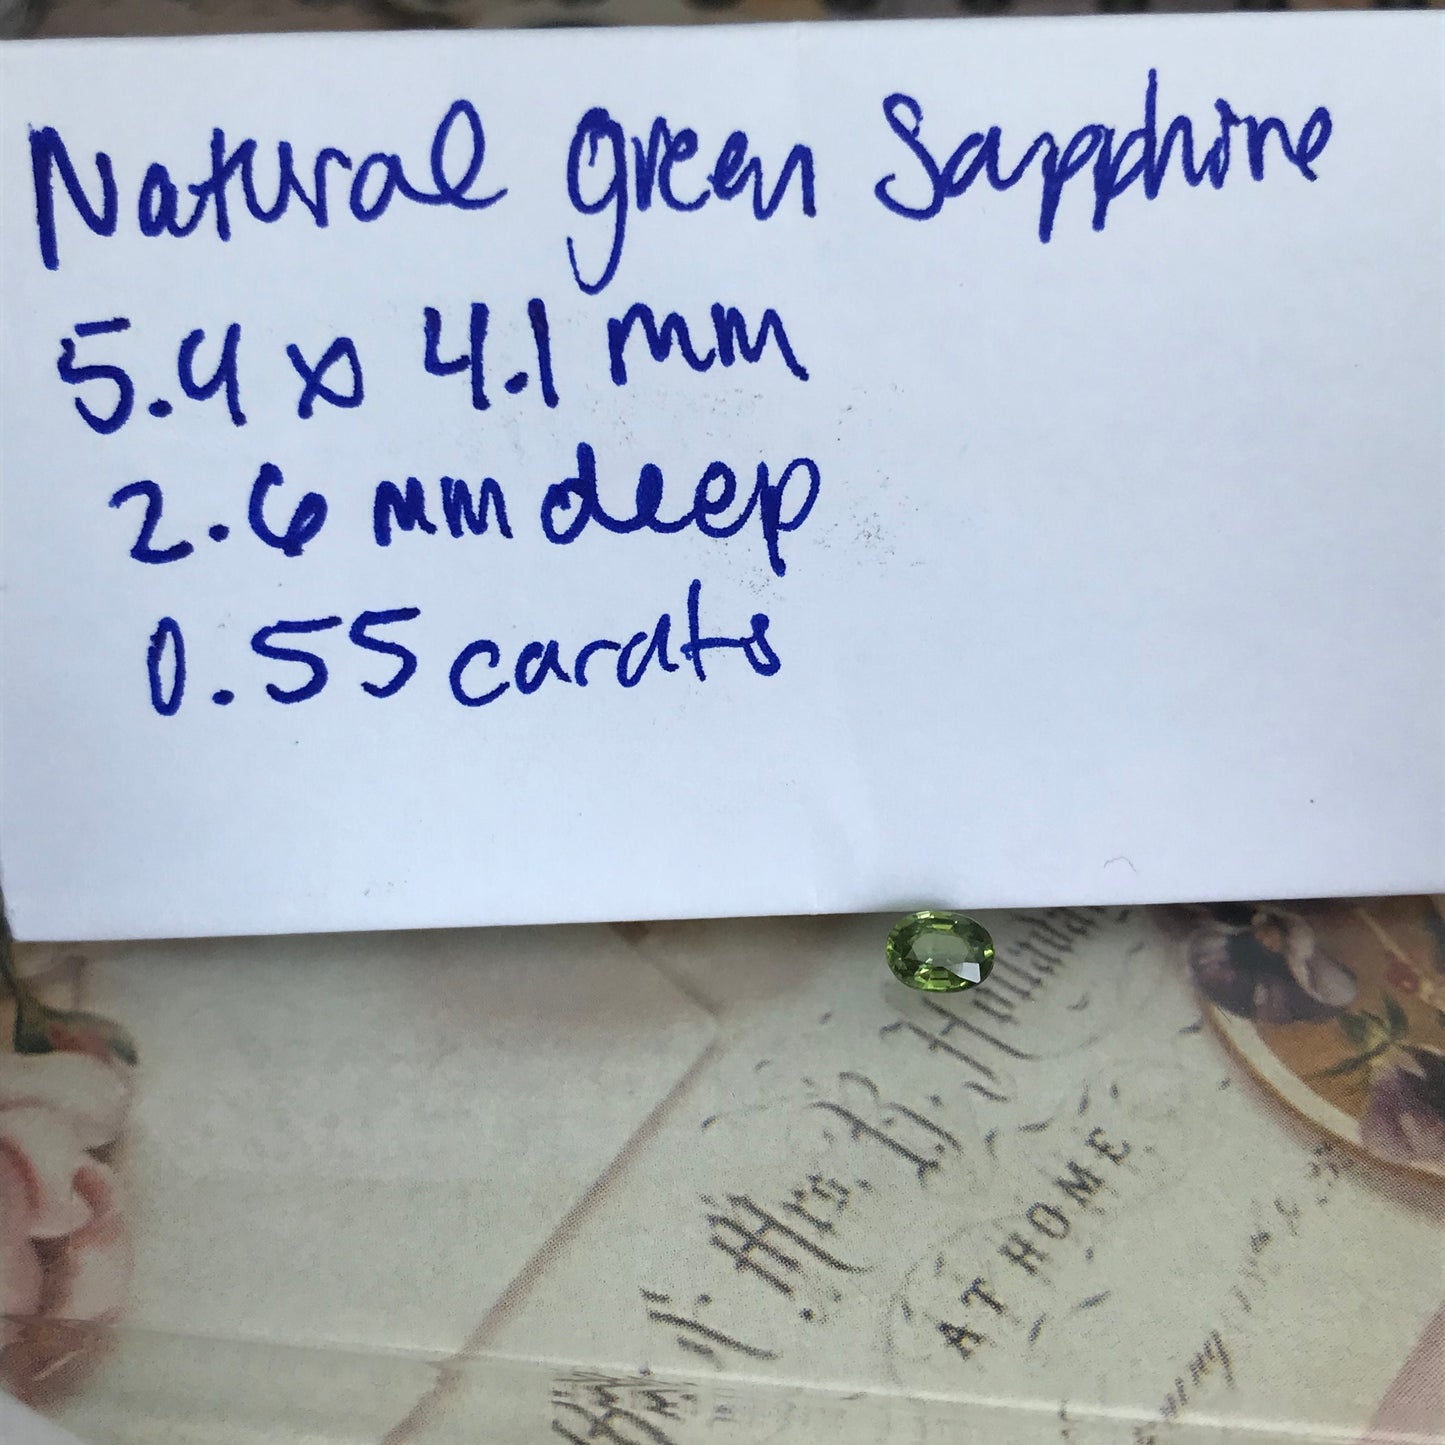 Natural green Sapphire
5.4 x 4.1 mm
2.6 mm deep
0.55 carats
Mrs. B.
AT HOME